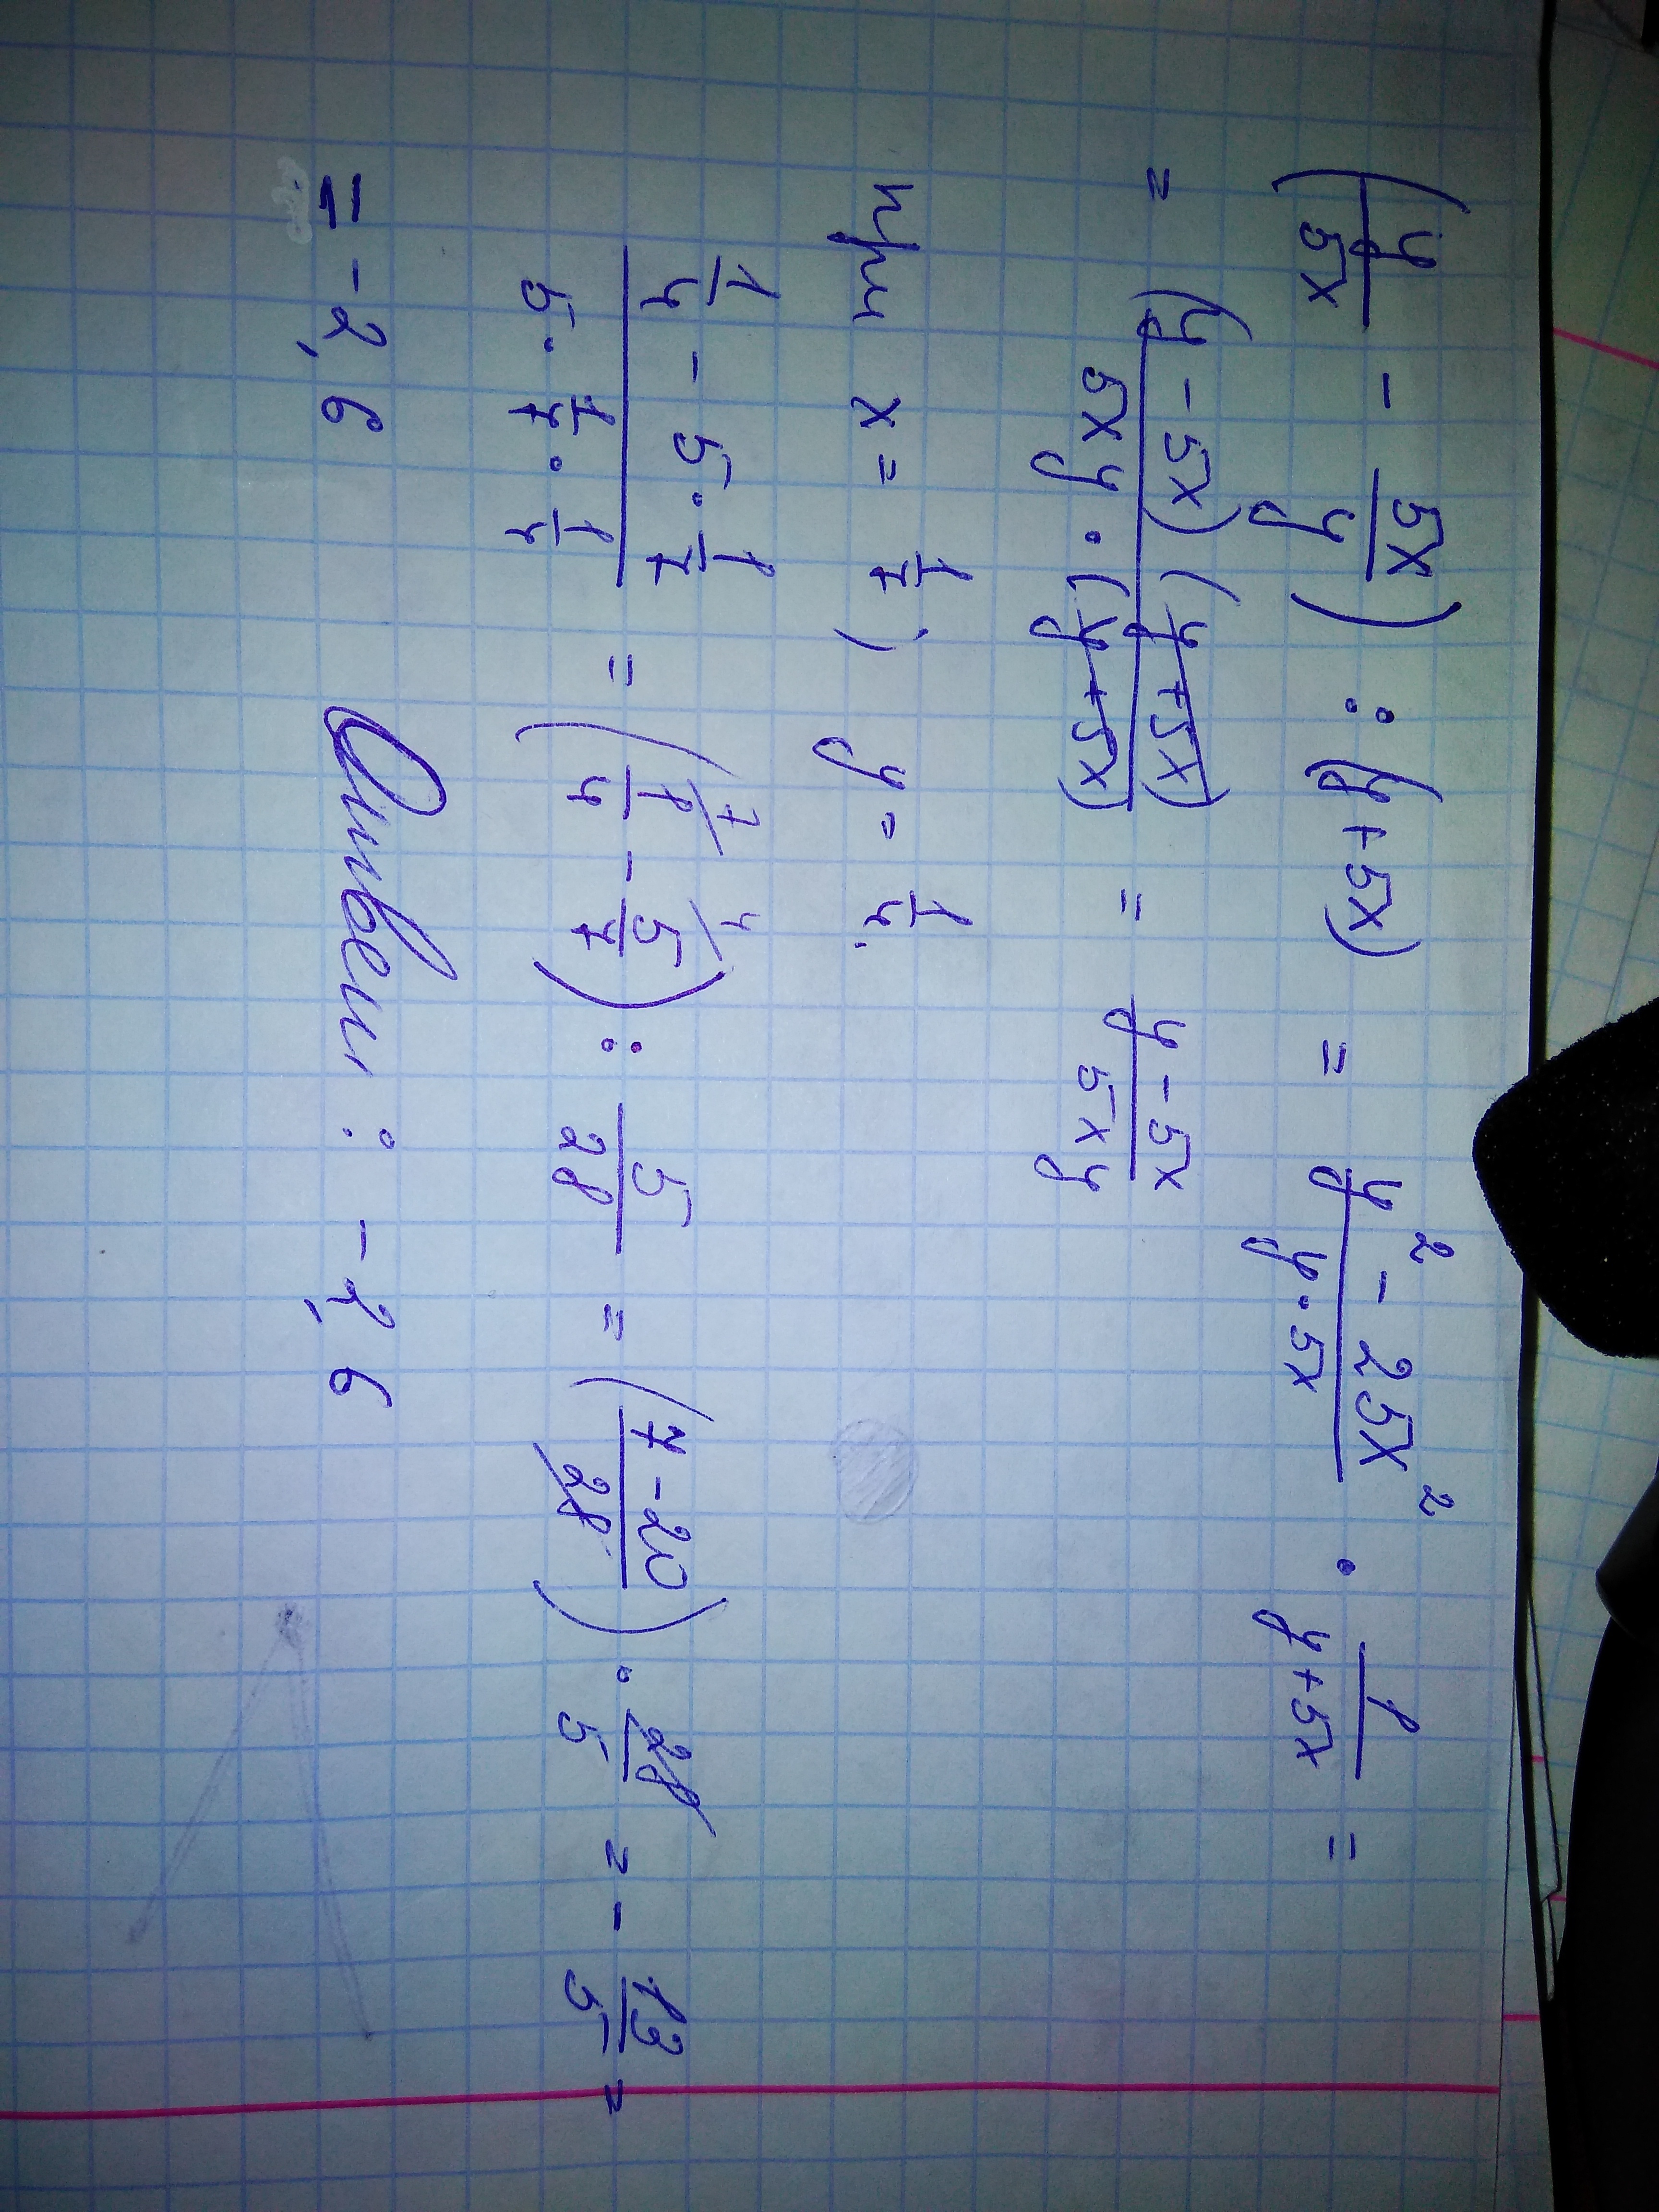 (y/5x - 5x/y) : (y + 5x) = (y² - 25x²)/(y · 5x) · 1/(y + 5x) =
= (y - 5x)(y + 5x)/(5xy · (y + 5x)) = (y - 5x)/(5xy)
при x = 1/7, y = 1/4.
(1/4 - 5 · 1/7)/(5 · 1/7 · 1/4) = (1/4 ⁷⁄ - 5/7 ⁴⁄) : 5/28 = ((7 - 20)/28) · 28/5 = - 13/5 =
= - 2,6 Ответ : - 2,6